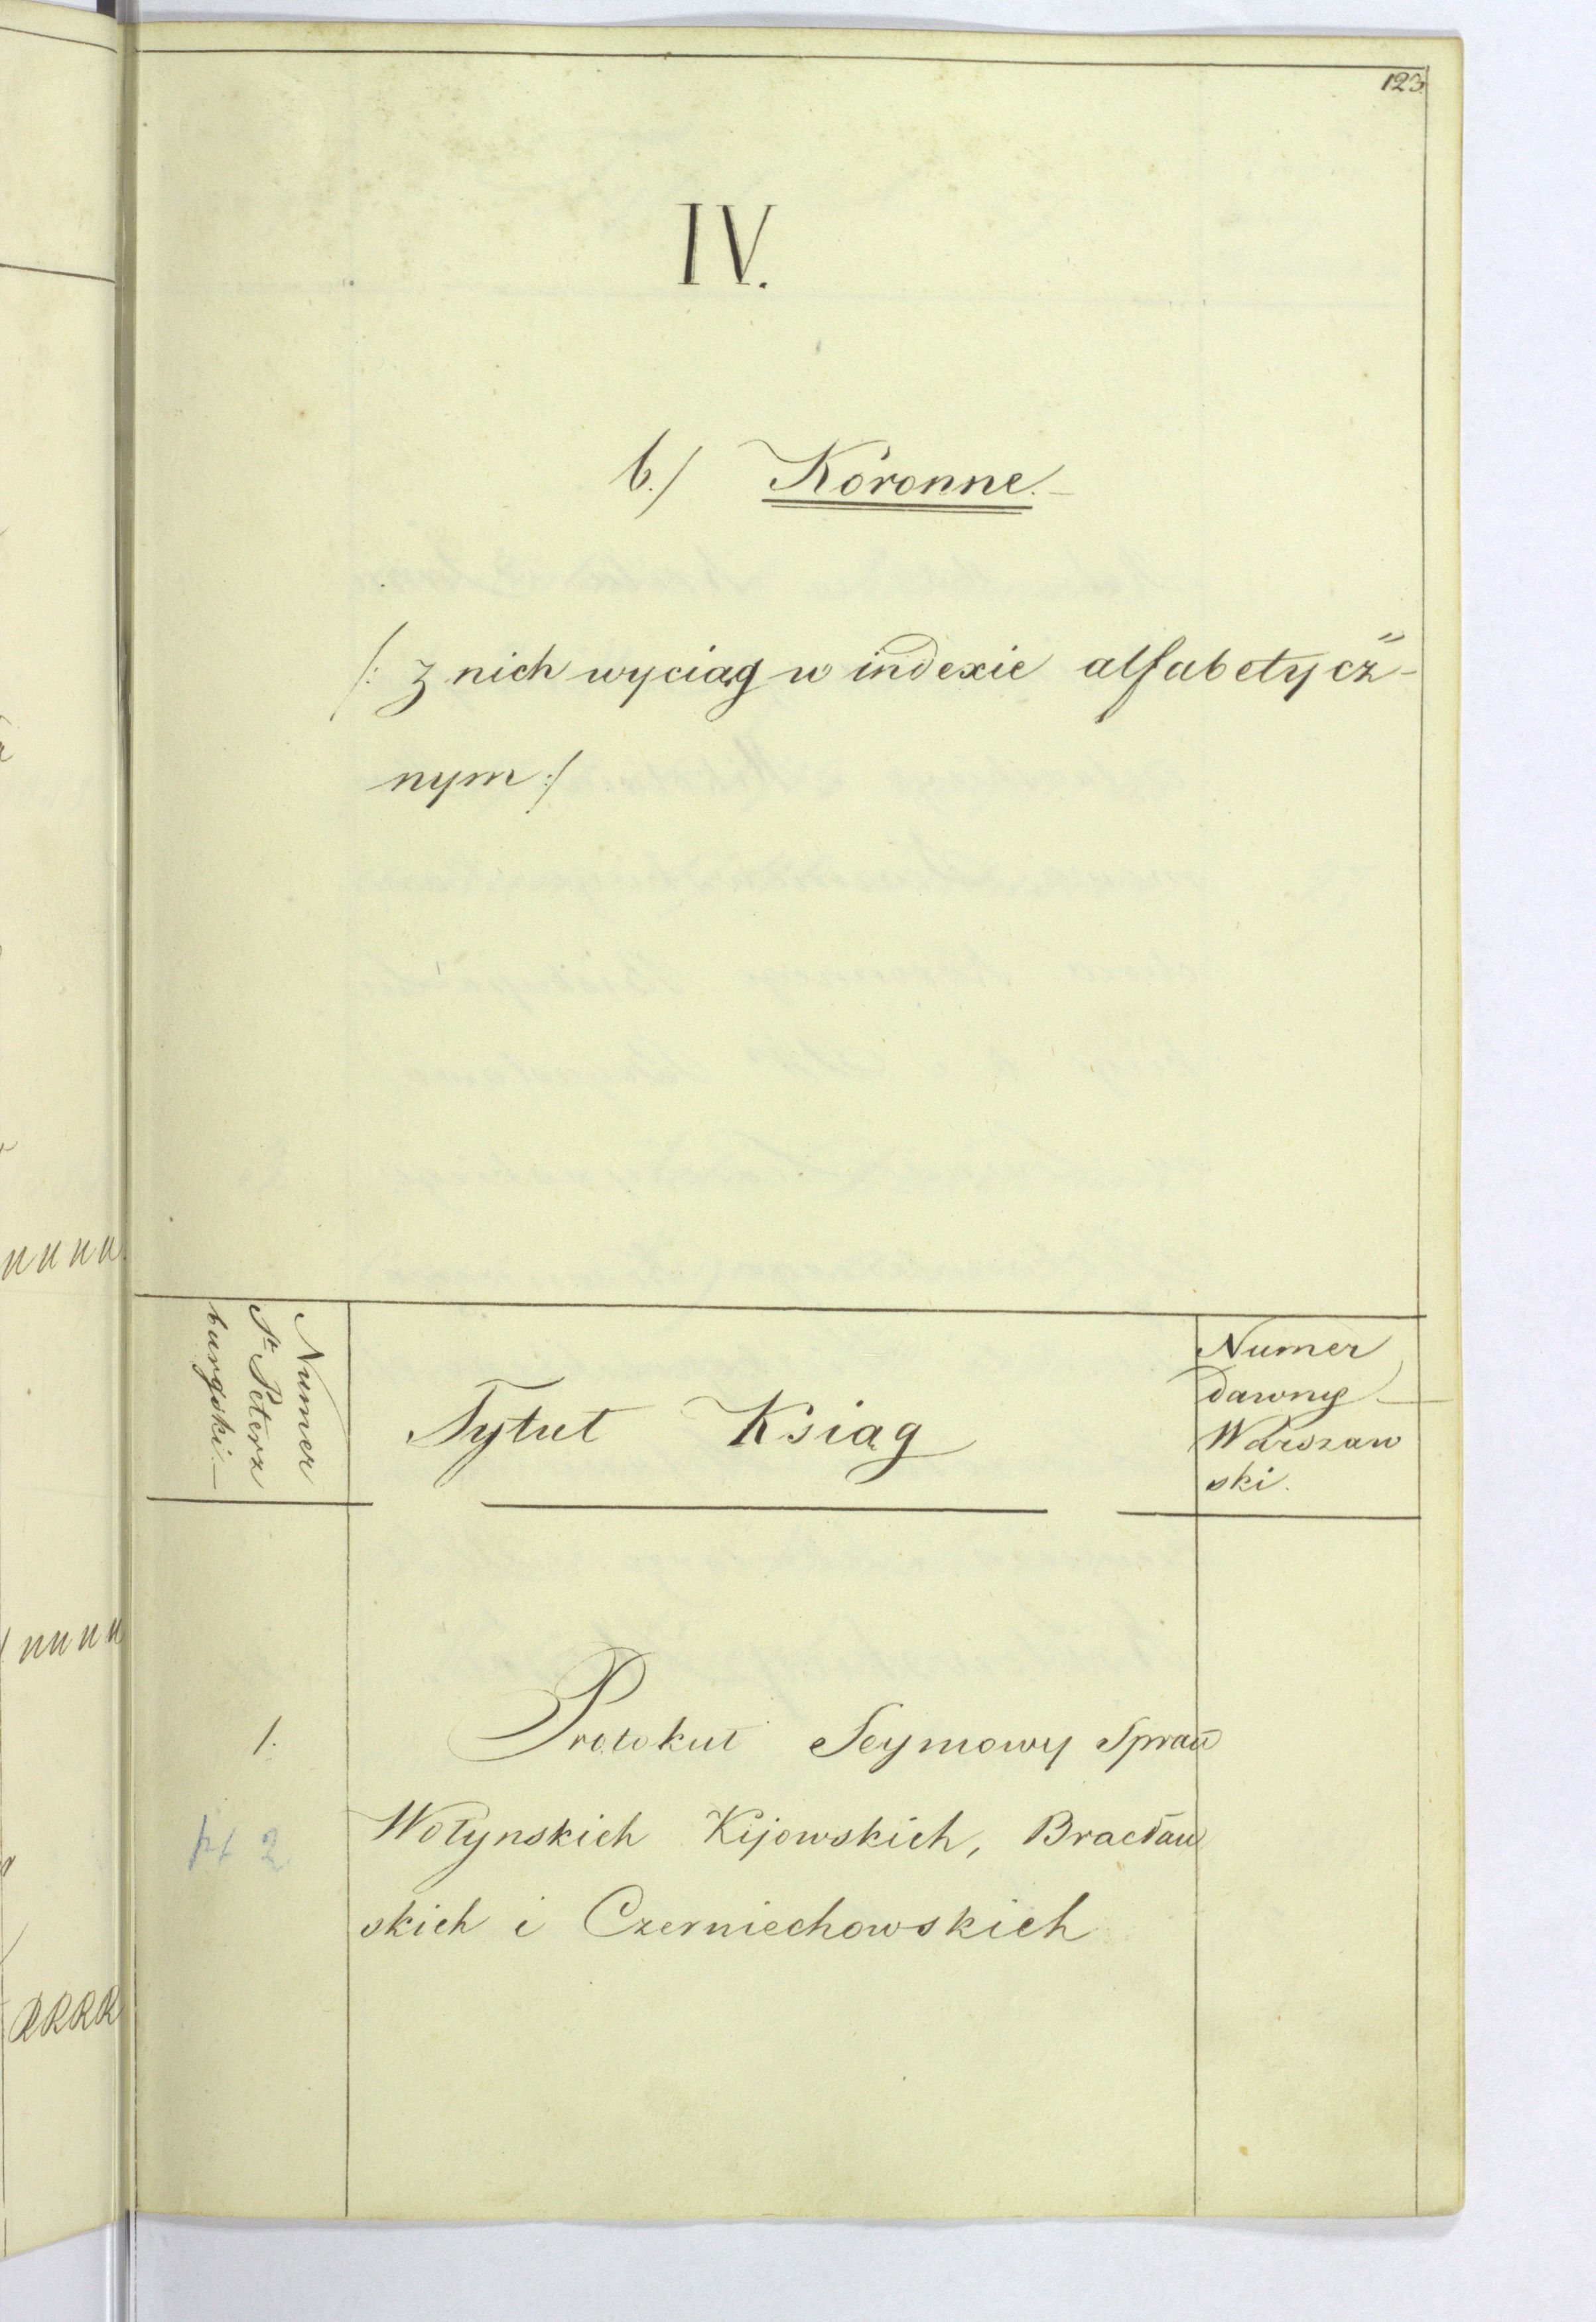 123.
IV.
b./ Koronne.—
/: z nich wyciąg w indexie alfabetycz-
nym :/
Numer
St Petersz
burgski.—
Tytuł Ksiąg
Numer
dawny
Warszaw
ski.
1. Protokuł Seymowy Spraw
Wołynskich Kijowskich, Bracław
skich i Czerniechowskich
nnnn
nnnn
RRRR